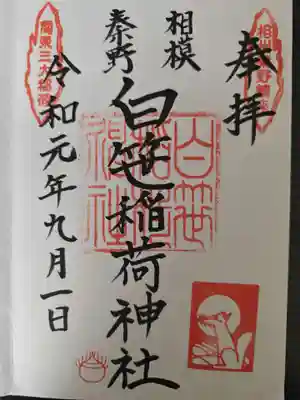 奉拝
相模
秦野
白笹稲荷神社
令和元年九月一日
関東三大稲荷
白笹稲荷社